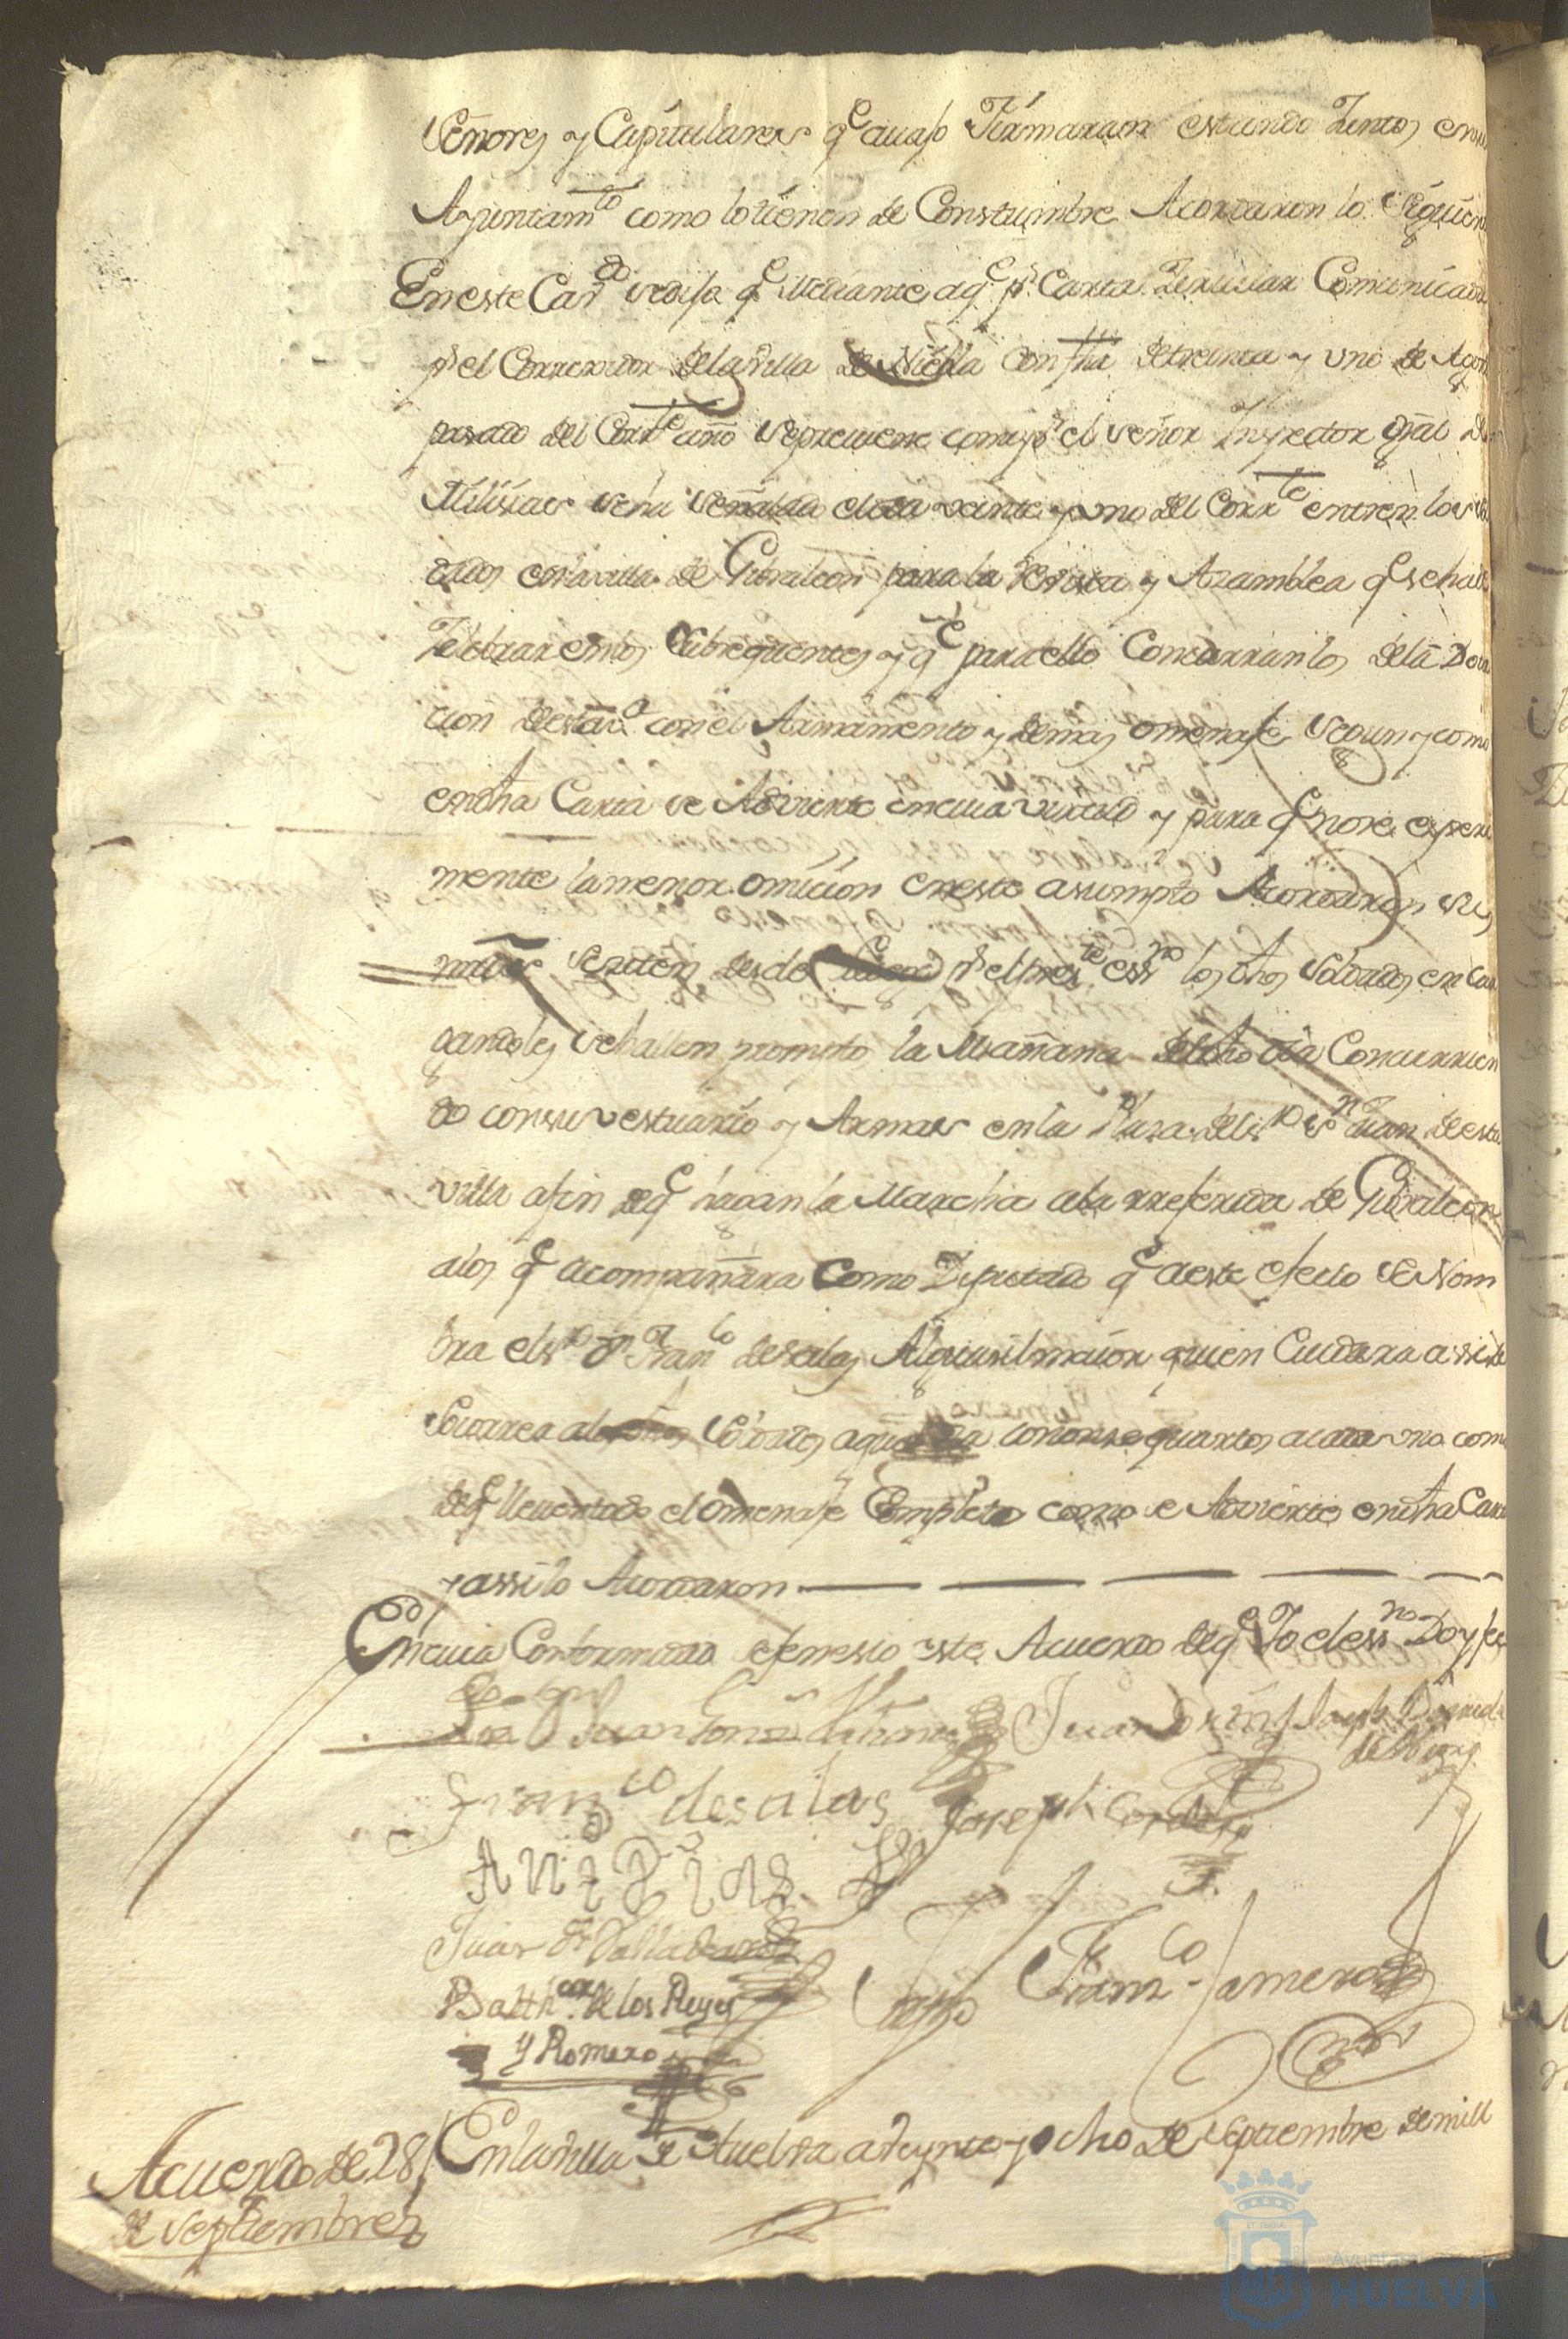 Señores y Capitulares q.e avajo Firmaran estando Juntos en su
Ayuntam.to como lo tienen de Constumbre Acordaron lo Siguien
En este Cav.do se dijo q.e mediante a q.e p.r Carta Circular Comunicada
p.r el Correxidor de la villa de Niebla con fha de treinta y uno de Agos
pasado del Corr.te año se previene como p.r el señor Inspector gral de
Milisias se ha señalado el dia veinte y uno del Corr.te entren los sol
dados en la villa de Gibraleon para la Revista y Azamblea q.e se ha de
Zelebrar en los Subsequentes y q.e para ello Concurran los de la Dota
cion de esta v.a con el Armamento y demas omenaje segun y como
en dha Carta se Advierte en cuia virtud y para q.e no se esperi
mente la menor omicion en este asumpto Acordaron sus
mrds se siten desde p.r el pres.te ess.no los dhos Soldados encar
gandoles se hallen promto la Mañana del dho dia Concurrien
do con su vestuario y Armas en la Plaza del s.or Sn Juan de esta
villa afin de q.e hagan la Marcha a la rreferida de Gibraleon
a los q.e acompañara Como Diputado q.e a este efecto se Nom
bra el s.or dn Fran.co de Salas Alguasil maior quien Cuidara assi de
Socorrer a los dhos Soldados aquel dia con onse quartos a cada uno como
de q.e lleven todo el omenaje Completo como se Advierte en dha Carta
y assi lo Acordaron
En cuia Conformidad se fenesio este Acuerdo de q.e Yo el ess.no Doy fee
Juan Joseph
de
Fran.co de salas Joseph Cordero
Juan Valladares
Balth.ar de los Reyes Fran.co
y Romero
Acuerdo de 28 En la villa de Huelva a veynte y ocho de septiembre de mill
de septiembre
Ayuntamiento
HUELVA